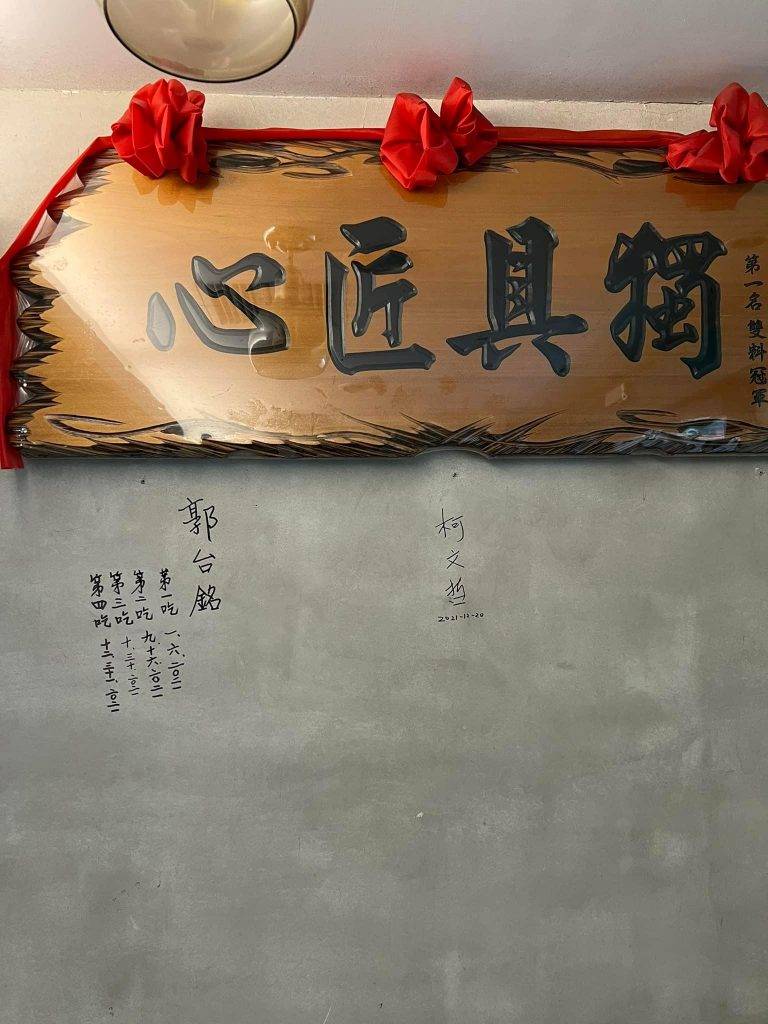 第一名 雙料冠軍
獨具匠心
柯文哲
2021-12-20
郭台銘
第一吃 一、六、二〇二一
第二吃 九、十六、二〇二一
第三吃 十、三十、二〇二一
第四吃 十二、三十一、二〇二一